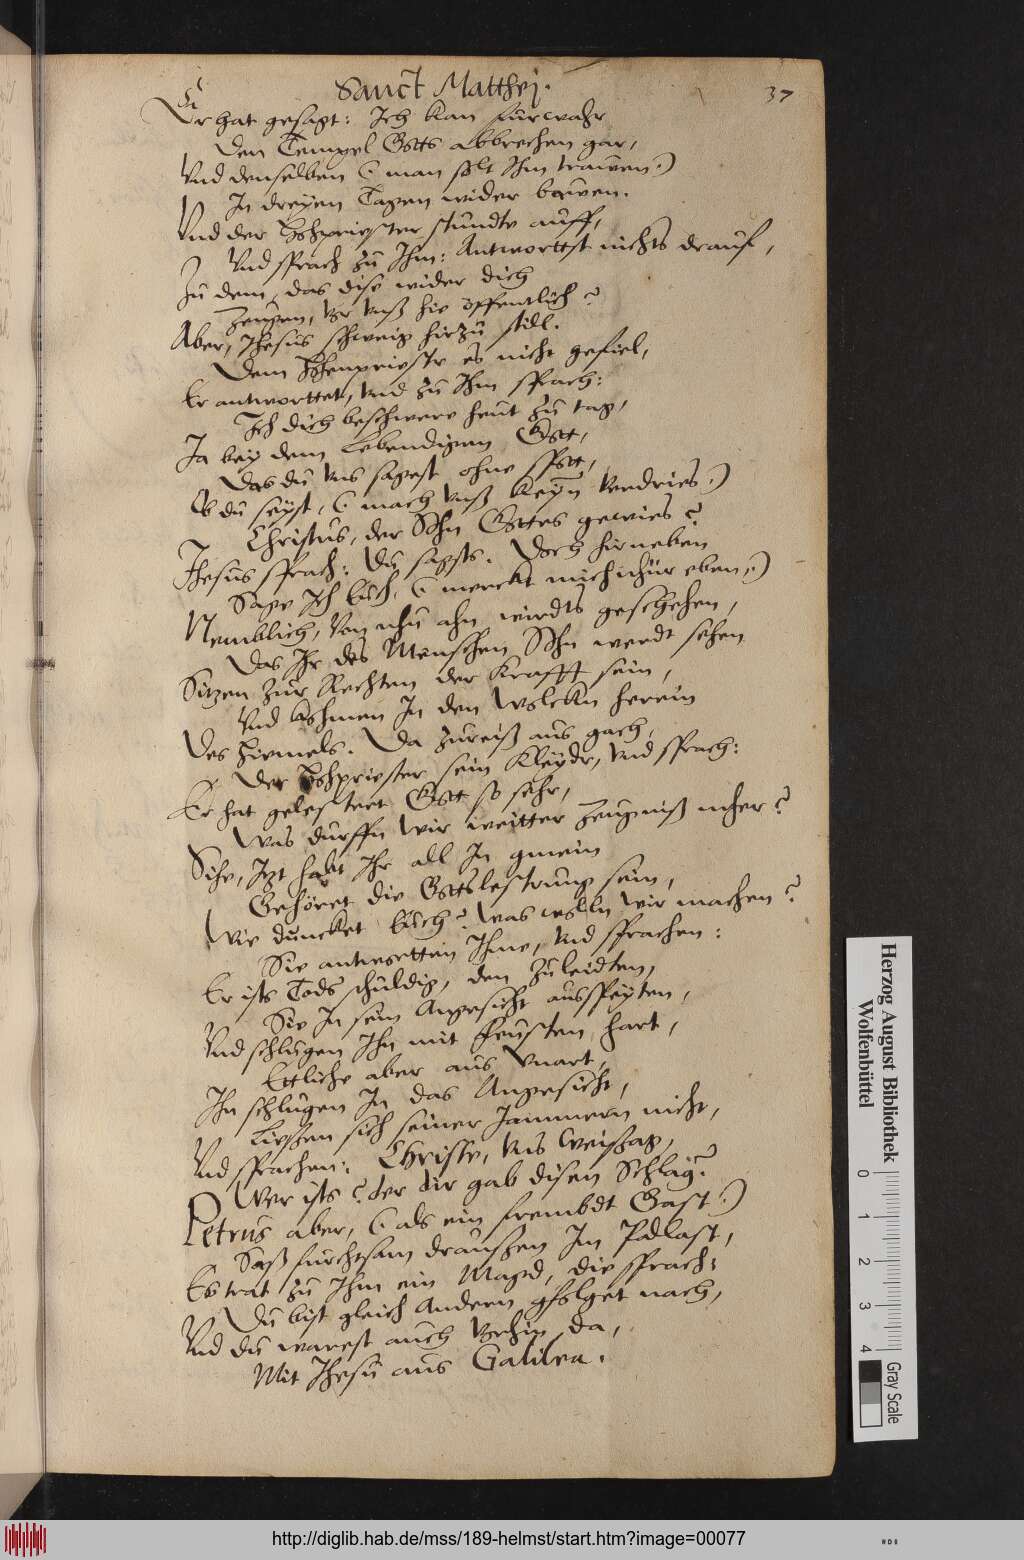 Sanct Matthej. 37
Er hat gesagt: Ich kan fürwahr
Den Tempel Gotts abbrechen gar,
Vnd denselben (: man solt Ihm trawen :)
In dreyen Tagen wider bawen.
Vnd der Hohpriester stundte auff,
Vnd sprach zu Ihm: Antworttst nichts drauf,
Zu dem, das dise wider dich
Zeugen, vor vnß hie öffentlich?
Aber, Jhesus schweig hirzu still.
Dem Hohenpriestr es nicht gefiel,
Er antworttet, vnd zu Ihm sprach:
Ich dich beschwere heut zu tag,
Ja bey dem Lebendigem Gott,
Das du vns sagest ohne spott,
Ob du seyst, (: mach vnß keyn verdries :)
Christus, der Sohn Gottes gewies?
Jhesus sprach: Du sagsts. Doch hirneben
Sage Ich Euch, (: merckt mich nhür eben, :)
Nemblich, Von nhu ahn wirdts geschehen,
Das Ihr des Menschen Sohn werdt sehen
Sitzen zur Rechten der Krafft sein,
Vnd kohmen In den Wolckn herein
Des Himels. Da zureiß aus gach,
Der Hohpriester sein Kleydr, vnd sprach:
Er hat gelestert Gott so sehr,
Was durffn wir weitter Zeugniß mher?
Sihe, Izt habt Ihr all In gmein
Gehöret die Gottslestrung sein,
Wie duncket Euch? Was wolln wir machen?
Sie antwortten Ihme, vnd sprachen:
Er ists Tods schuldig, den zuleidten,
Sie In sein Angesicht ausspeyten,
Vnd schlugen Ihn mit feusten hart,
Ettliche aber aus vnart,
Ihn schlugen In das Angesicht,
Liessen sich seiner Jammern nicht,
Vnd sprachen: Christe, vns Weissag,
Wer ists? der dir gab disen Schlag?
Petrus aber, (: als ein frembdt Gast :)
Saß furchtsam draussen Im Palast,
Es trat zu Ihm ein Magd, die sprach:
Du bist gleich Andern gfolget nach,
Vnd du warest auch vorhin da,
Mit Jhesu aus Galilea.
Herzog August Bibliothek
Wolfenbüttel
0 1 2 3 4
Gray Scale
http://diglib.hab.de/mss/189-helmst/start.htm?image=00077